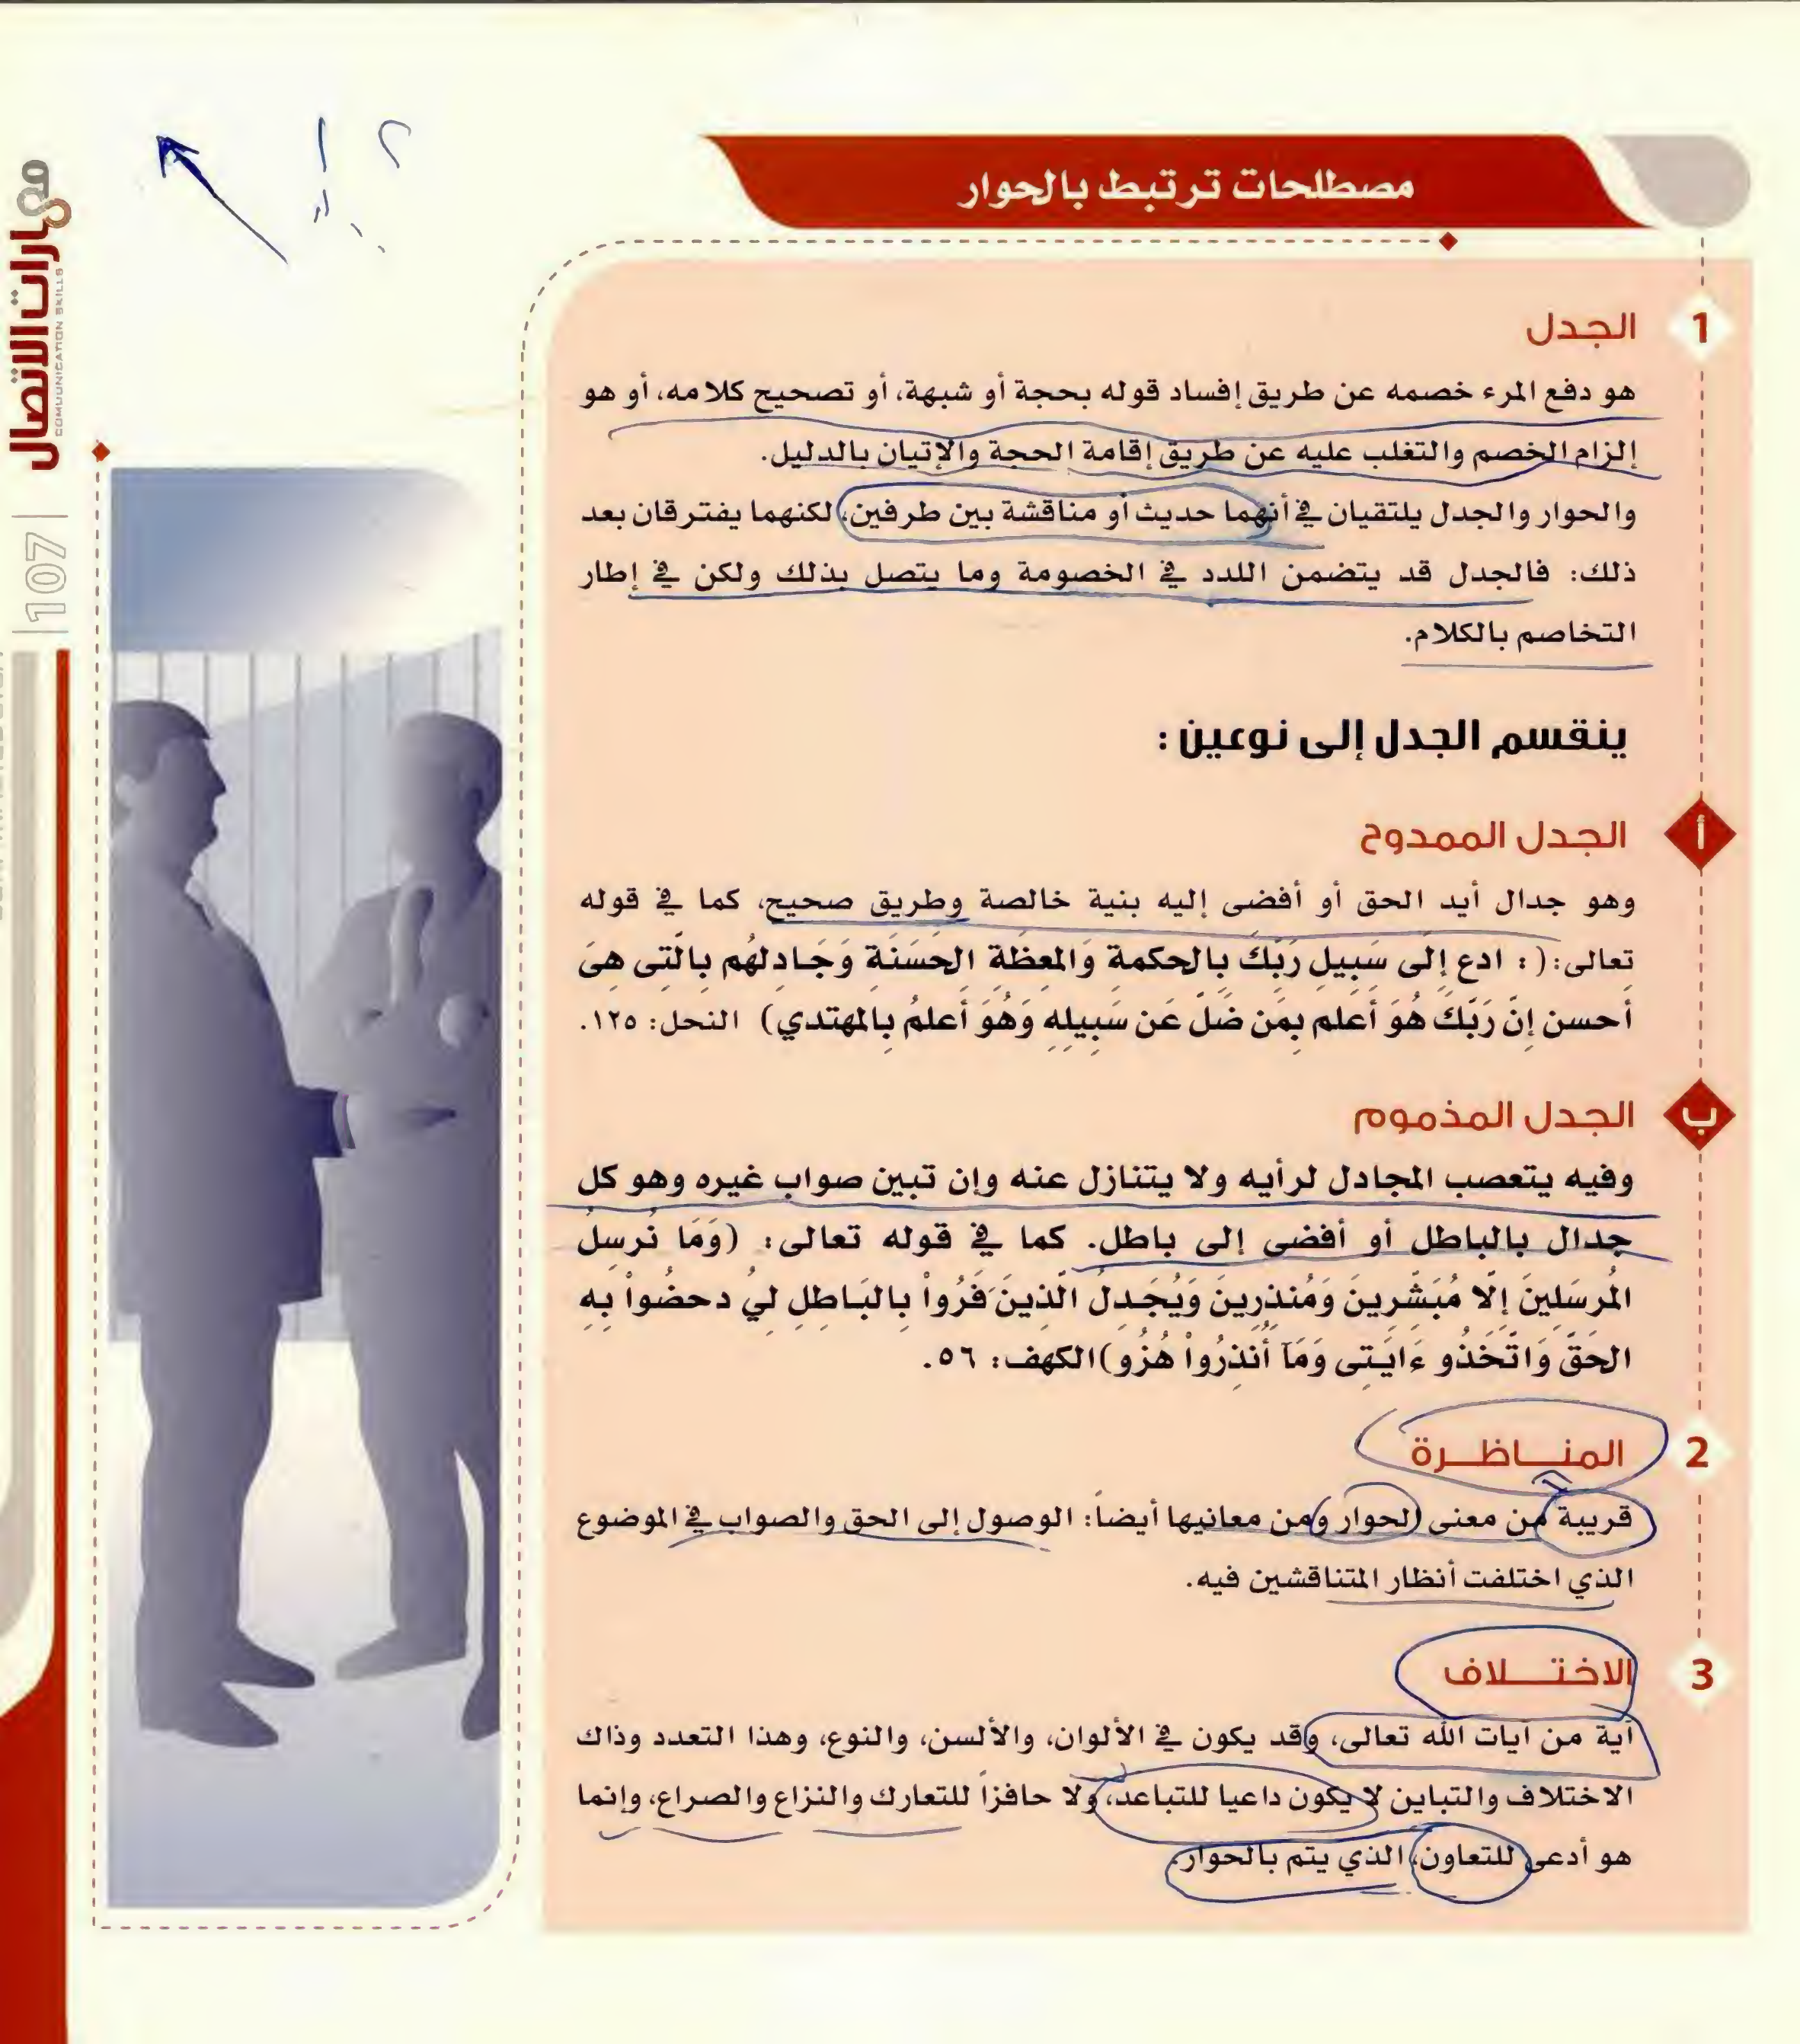 مصطلحات ترتبط بالحوار
1 الجدل
هو دفع المرء خصمه عن طريق إفساد قوله بحجة أو شبهة، أو تصحيح كلامه، أو هو
إلزام الخصم والتغلب عليه عن طريق إقامة الحجة والإتيان بالدليل.
والحوار والجدل يلتقيان في أنهما حديث أو مناقشة بين طرفين، لكنهما يفترقان بعد
ذلك: فالجدل قد يتضمن اللدد في الخصومة وما يتصل بذلك ولكن في إطار
التخاصم بالكلام.
ينقسم الجدل إلى نوعين:
أ الجدل الممدوح
وهو جدال أيد الحق أو أفضى إليه بنية خالصة وطريق صحيح، كما في قوله
تعالى:(: ادع إِلَى سَبِيلِ رَبِّكَ بِالحكمة وَالمعظَة الحَسَنَة وَجَادلهُم بالَّتى هىَ
أحسن إنَّ رَبَّكَ هُوَ أعلم بِمَن ضَلَّ عَن سَبِيله وَهُوَ أعلمُ بالمهتدي) النحل: ١٢٥.
ب الجدل المذموم
وفيه يتعصب المجادل لرأيه ولا يتنازل عنه وإن تبين صواب غيره وهو كل
جدال بالباطل أو أفضى إلى باطل. كما في قوله تعالى: (وَمَا نُرسِلُ
المُرسَلِينَ إِلَّا مُبَشِّرِينَ وَمُنذِرِينَ وَيُجَدِلُ الَّذِينَ َفَرُواْ بِالبَاطِلِ لِيُ دحضُواْ بِهِ
الحَقَّ وَاتَّخَذُو ءَايَتِى وَمَآ أُنذِرُواْ هُزُو)الكهف: ٥٦.
2 المناظرة
قريبة من معنى الحوار ومن معانيها أيضاً: الوصول إلى الحق والصواب في الموضوع
الذي اختلفت أنظار المتناقشين فيه.
3 الاختلاف
آية من آيات الله تعالى، وقد يكون في الألوان، والألسن، والنوع، وهذا التعدد وذاك
الاختلاف والتباين لا يكون داعيا للتباعد، ولا حافزاً للتعارك والنزاع والصراع، وإنما
هو أدعى للتعاون، الذي يتم بالحوار.
مهارات الاتصال
COMUUNICATION SKILLS
|107|